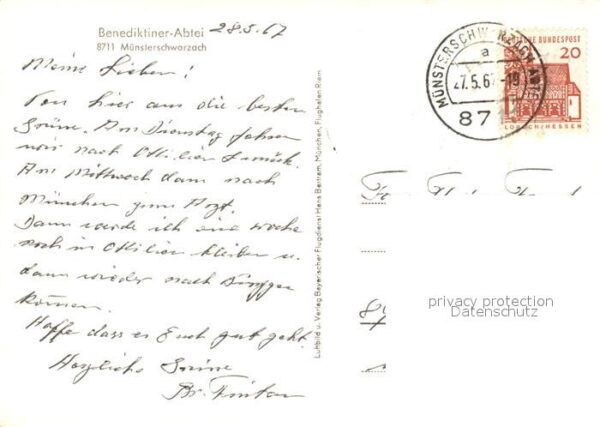 Benediktiner-Abtei
8711 Münsterschwarzach
28.5.67
Meine Lieben!
Von hier aus die besten
Grüsse. Am Dienstag fahren
wir nach Ottilien zurück.
Am Mittwoch dann nach
München zum Arzt.
Dann werde ich eine Woche
noch in Ottilien bleiben u.
dann wieder nach
kommen.
Hoffe dass es Euch gut geht.
Herzliche Grüsse
Br. Fintan
Luftbild u. Verlag Bayerischer Flugdienst Hans Bertram, München, Flughafen Riem
MÜNSTERSCHWARZACH ABTEI
a
27.5.67-19
871
DEUTSCHE BUNDESPOST
20
LORSCH/HESSEN
privacy protection
Datenschutz